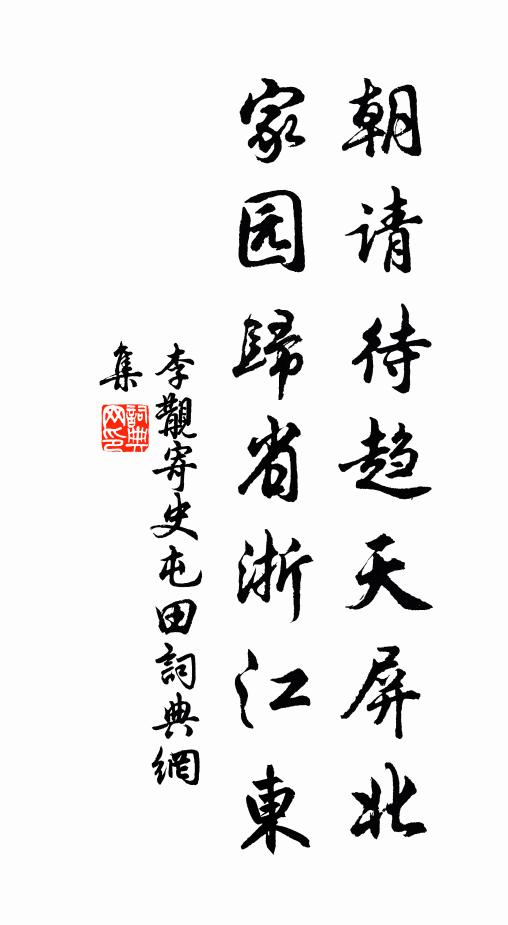 朝请待趋天屏北
家园歸省浙江東
李覯寄史屯田詞典網
集
詞典
网印